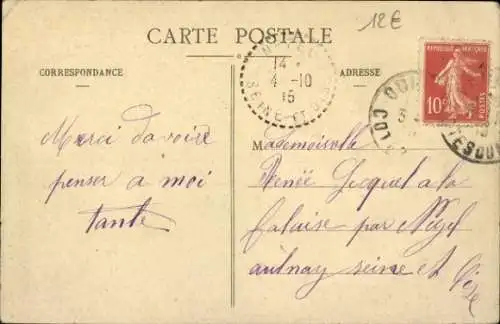 12€
CARTE POSTALE
CORRESPONDANCE
ADRESSE
14
4-10
15
SEINE ET OISE
REPUBLIQUE FRANÇAISE
10c
POSTES
Merci davoire
penser a moi
tante
Mademoiselle
Renée Jacquel a la
falaise par
aulnay seine et Oise